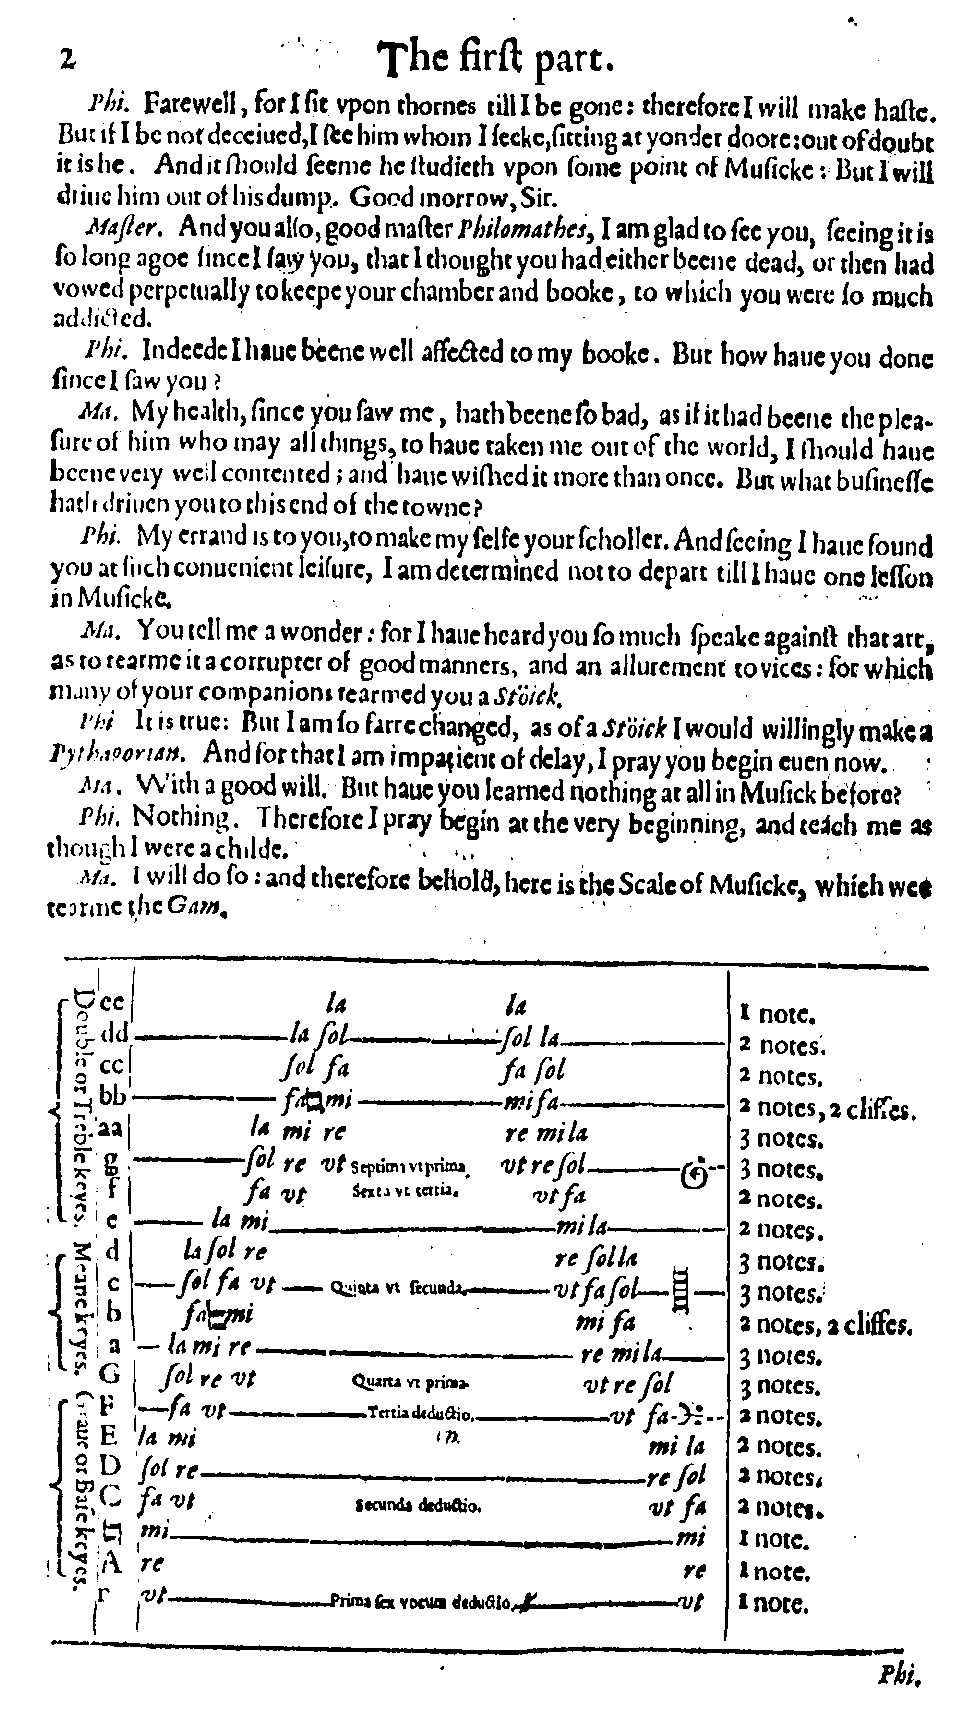 2 The firſt part.
Phi. Farewell, for I ſit vpon thornes till I be gone: therefore I will make haſte.
But if I be not deceiued, I ſee him whom I ſeeke, ſitting at yonder doore: out of doubt
it is he. And it ſhould ſeeme he ſtudieth vpon ſome point of Muſicke: But I will
driue him out of his dump. Good morrow, Sir.
Maſter. And you alſo, good maſter Philomathes, I am glad to ſee you, ſeeing it is
ſo long agoe ſince I ſaw you, that I thought you had either beene dead, or then had
vowed perpetually to keepe your chamber and booke, to which you were ſo much
addicted.
Phi. Indeede I haue beene well affected to my booke. But how haue you done
ſince I ſaw you?
Ma. My health, ſince you ſaw me, hath beene ſo bad, as if it had beene the plea-
ſure of him who may all things, to haue taken me out of the world, I ſhould haue
beene very well contented; and haue wiſhed it more than once. But what buſineſſe
hath driuen you to this end of the towne?
Phi. My errand is to you, to make my ſelfe your ſcholler. And ſeeing I haue found
you at ſuch conuenient leiſure, I am determined not to depart till I haue one leſſon
in Muſicke.
Ma. You tell me a wonder: for I haue heard you ſo much ſpeake againſt that art,
as to tearme it a corrupter of good manners, and an allurement to vices: for which
many of your companions tearmed you a Stöick.
Phi It is true: But I am ſo farre changed, as of a Stöick I would willingly make a
Pythagorian. And for that I am impatient of delay, I pray you begin euen now.
Ma. With a good will. But haue you learned nothing at all in Muſick before?
Phi. Nothing. Therefore I pray begin at the very beginning, and teach me as
though I were a childe.
Ma. I will do ſo: and therefore behold, here is the Scale of Muſicke, which wee
tearme the Gam.
Double or Treble keyes.
Meane keyes.
Graue or Baſe keyes.
ee la la 1 note.
dd la ſol ſol la 2 notes.
cc ſol fa fa ſol 2 notes.
bb fa ♮ mi mi fa 2 notes, 2 cliffes.
aa la mi re re mi la 3 notes.
gg ſol re vt Septima vt prima. vt re ſol 3 notes.
f fa vt Sexta vt tertia. vt fa 2 notes.
e la mi mi la 2 notes.
d la ſol re re ſol la 3 notes.
c ſol fa vt Quinta vt ſecunda. vt fa ſol 3 notes.
b fa ♮ mi mi fa 2 notes, 2 cliffes.
a la mi re re mi la 3 notes.
G ſol re vt Quarta vt prima. vt re ſol 3 notes.
F fa vt Tertia deductio. vt fa 2 notes.
E la mi in. mi la 2 notes.
D ſol re re ſol 2 notes.
C fa vt Secunda deductio. vt fa 2 notes.
♮ mi mi 1 note.
A re re 1 note.
Γ vt Prima ſex vocum deductio. vt 1 note.
Phi.